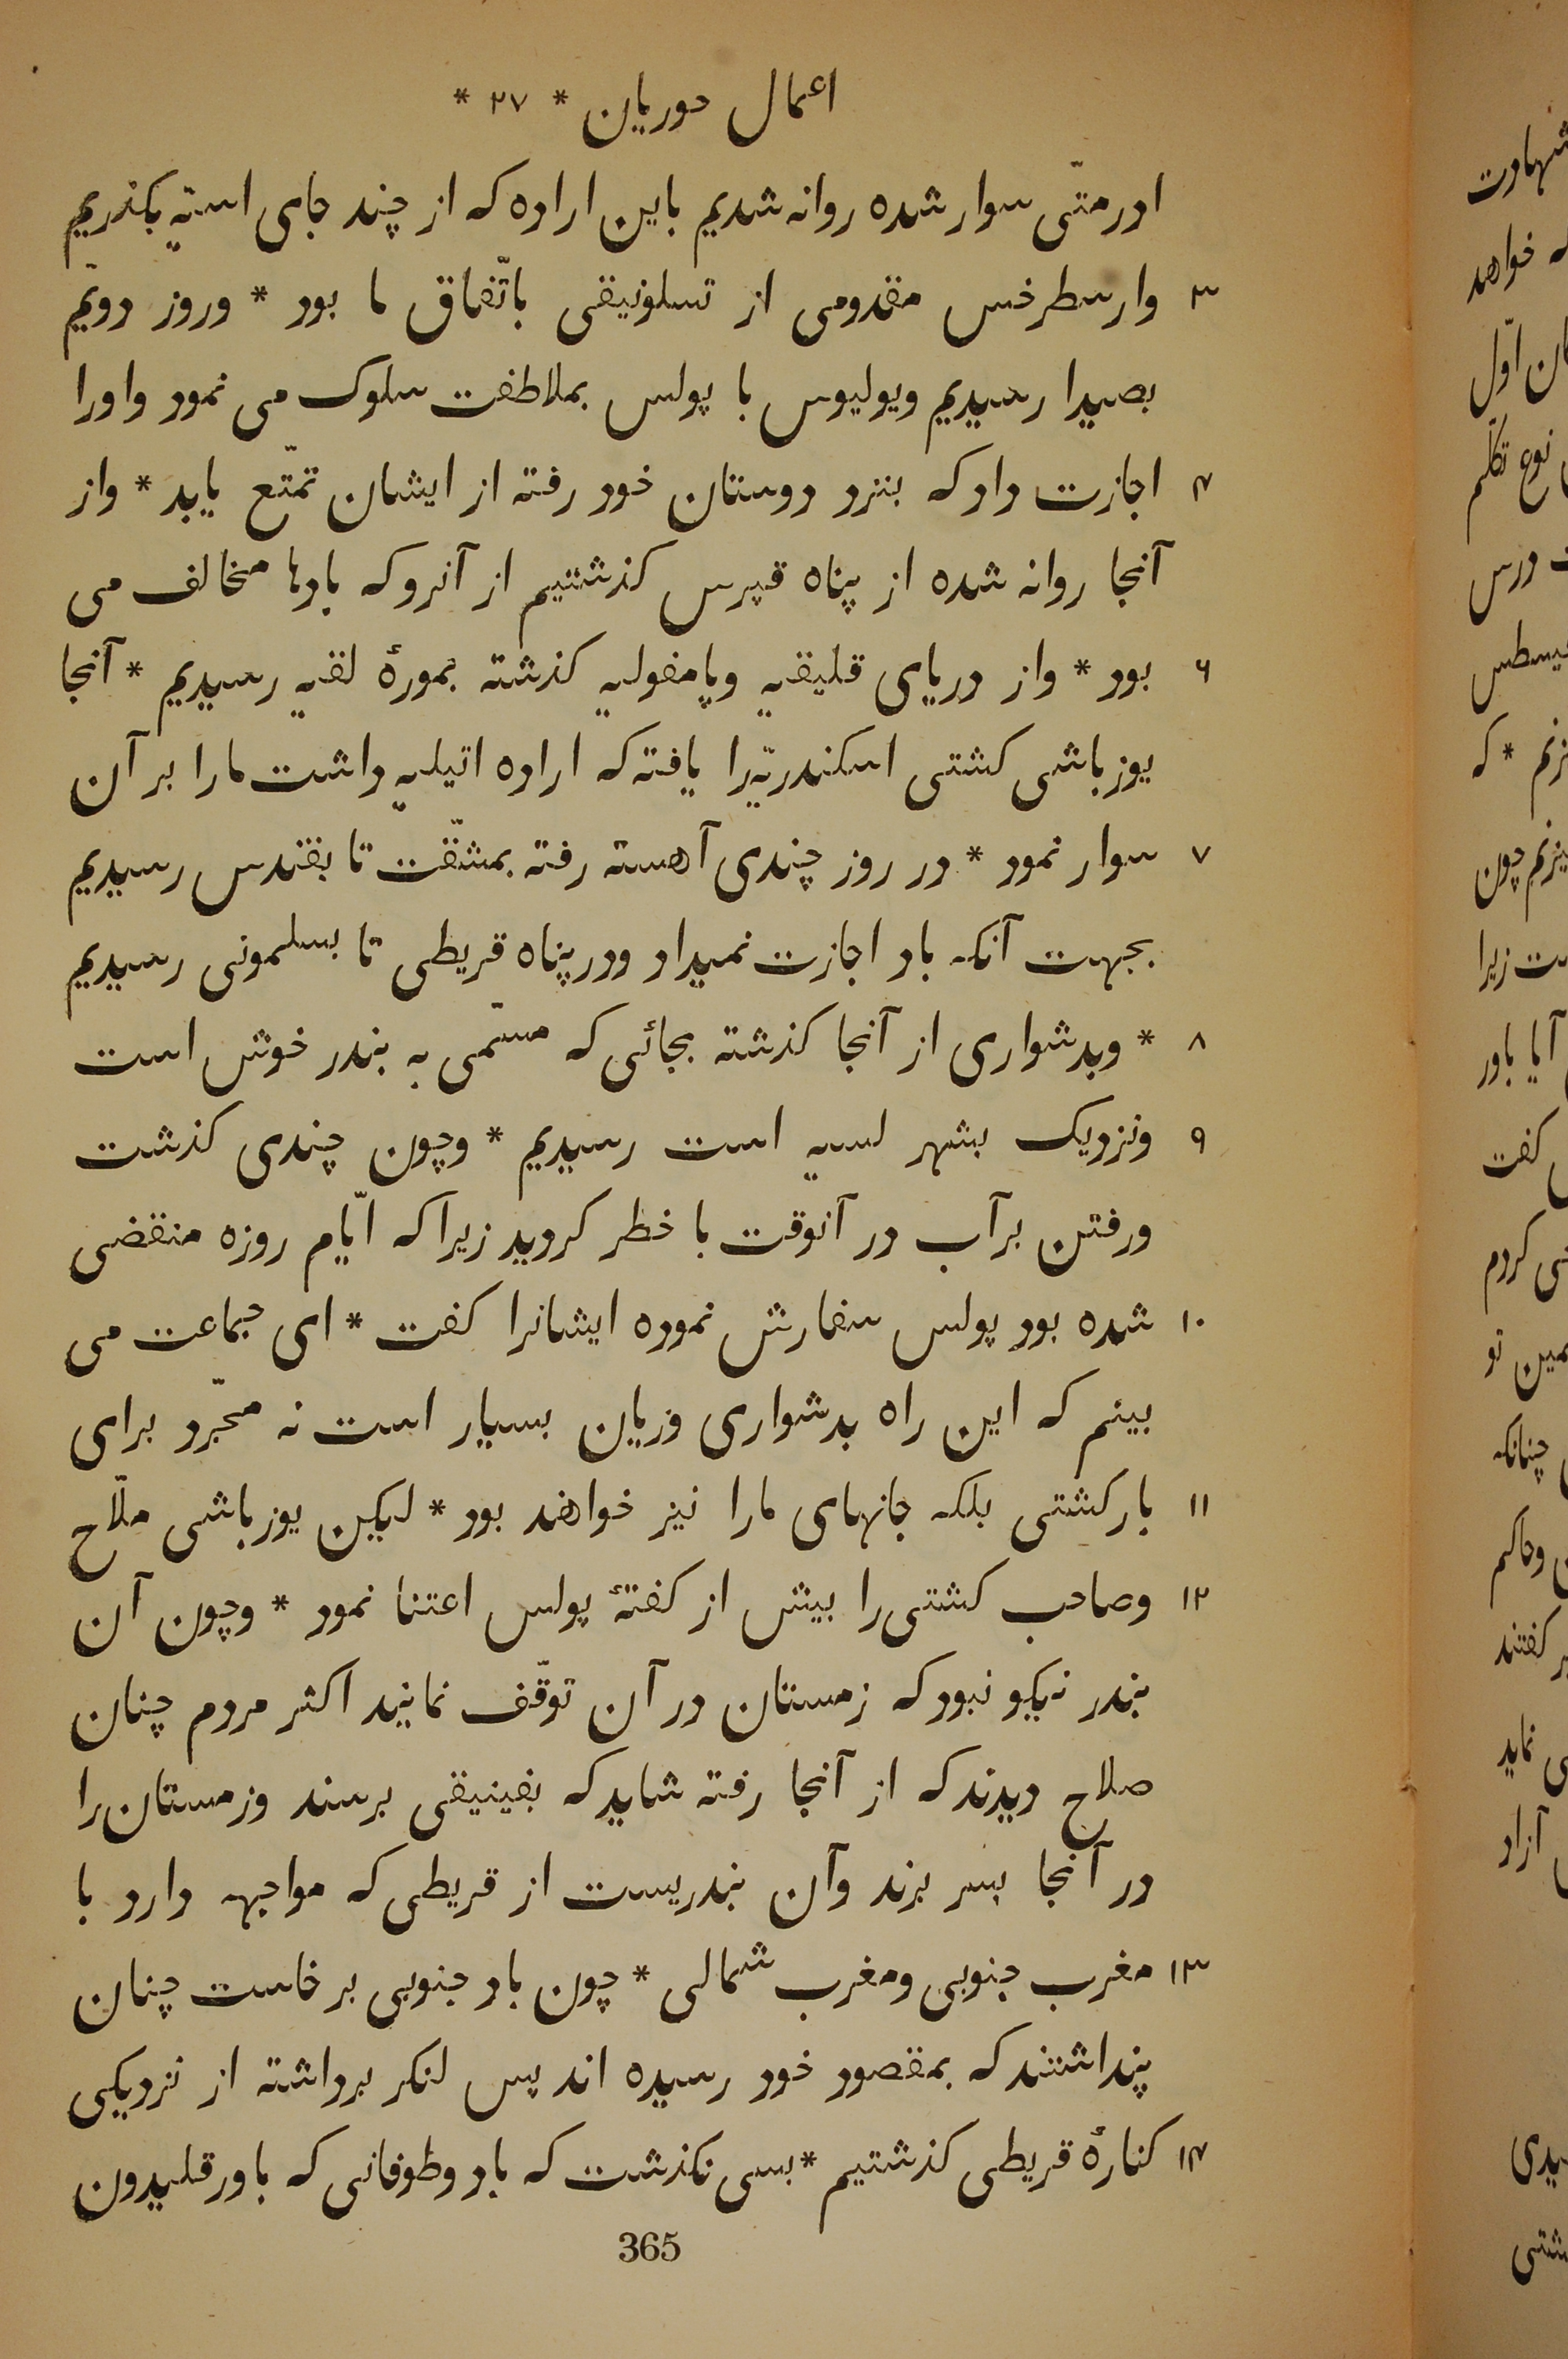 اعمال حوریان * ۲۷ *
ادرمتّی سوار شده روانه شدیم باین اراده که از چند جای استیه بکذریم
۳ وارسطرخس مقدومی از تسلونیقی باتّفاق ما بود * وروز دویّم
بصیدا رسیدیم ویولیوس با پولس بملاطفت سلوک می نمود واورا
۴ اجازت داد که بنزد دوستان خود رفته از ایشان تمتّع یابد * واز
آنجا روانه شده از پناه قپرس کذشتیم از آنرو که بادها مخالف می
۶ بود * واز دریای قلیقیه وپامفولیه کذشته بمورهٔ لقیه رسیدیم * آنجا
یوزباشی کشتی اسکندریّه را یافته که اراده اتیلیه داشت مارا بر آن
۷ سوار نمود * در روز چندی آهسته رفته بمشقّت تا بقندس رسیدیم
بجهت آنکه باد اجازت نمیداد ودر پناه قریطی تا بسلمونی رسیدیم
۸ * وبدشواری از آنجا کذشته بجائی که مسمّی به بندر خوش است
۹ ونزدیک بشهر لسیه است رسیدیم * وچون چندی کذشت
ورفتن بر آب در آنوقت با خطر کردید زیرا که ایّام روزه منقضی
۱۰ شده بود پولس سفارش نموده ایشانرا کفت * ای جماعت می
بینم که این راه بدشواری وزیان بسیار است نه مجّرد برای
۱۱ بار کشتی بلکه جانهای مارا نیز خواهند بود * لیکن یوزباشی ملّاح
۱۲ وصاحب کشتی را بیش از کفتهٔ پولس اعتنا نمود * وچون آن
بندر نیکو نبود که زمستان در آن توقّف نمایند اکثر مردم چنان
صلاح دیدند که از آنجا رفته شاید که بفینیقی برسند وزمستان را
در آنجا بسر برند وآن بندریست از قریطی که مواجهه دارد با
۱۳ مغرب جنوبی ومغرب شمالی * چون باد جنوبی بر خاست چنان
پنداشتند که بمقصود خود رسیده اند پس لنکر برداشته از نزدیکی
۱۴ کنارهٔ قریطی کذشتیم * بسی نکذشت که باد وطوفانی که باورقلیدون
365
شهادت
که خواهد
اوّل
نوع تکلّم
درس
* که
چون
زیرا
آیا باور
کفت
کردم
تو
چنانکه
وحاکم
کفتند
نماید
آزاد